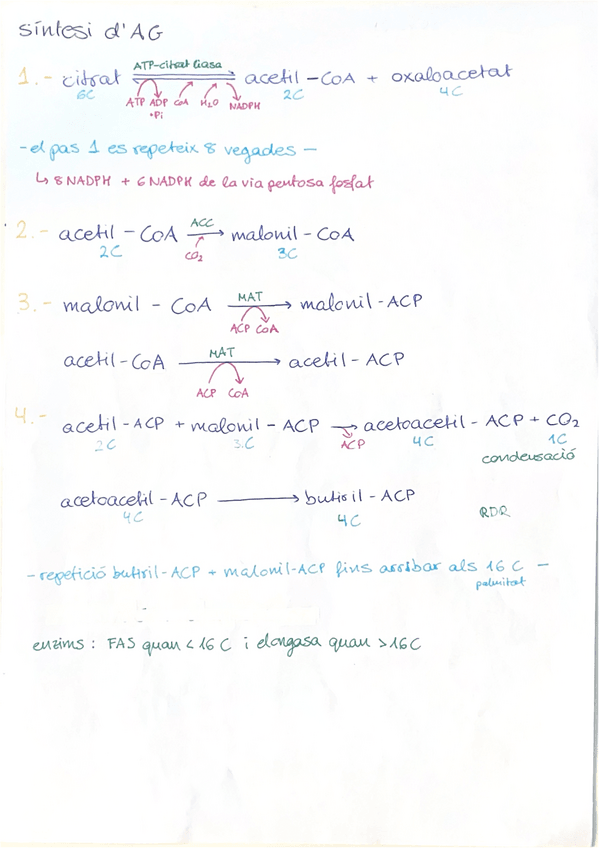 síntesi d'AG
ATP-citrat liasa
1.- citrat ⇌ acetil-CoA + oxaloacetat
6C 2C 4C
ATP ADP CoA H2O NADPH
+Pi
-el pas 1 es repeteix 8 vegades-
↳ 8 NADPH + 6 NADPH de la via pentosa fosfat
ACC
2.- acetil-CoA → malonil-CoA
2C CO2 3C
MAT
3.- malonil-CoA → malonil-ACP
ACP CoA
MAT
acetil-CoA → acetil-ACP
ACP CoA
4.- acetil-ACP + malonil-ACP → acetoacetil-ACP + CO2
2C 3C ACP 4C 1C
condensació
acetoacetil-ACP → butiril-ACP
4C 4C RDR
-repetició butiril-ACP + malonil-ACP fins arribar als 16 C-
palmitat
enzims: FAS quan < 16 C i elongasa quan > 16 C